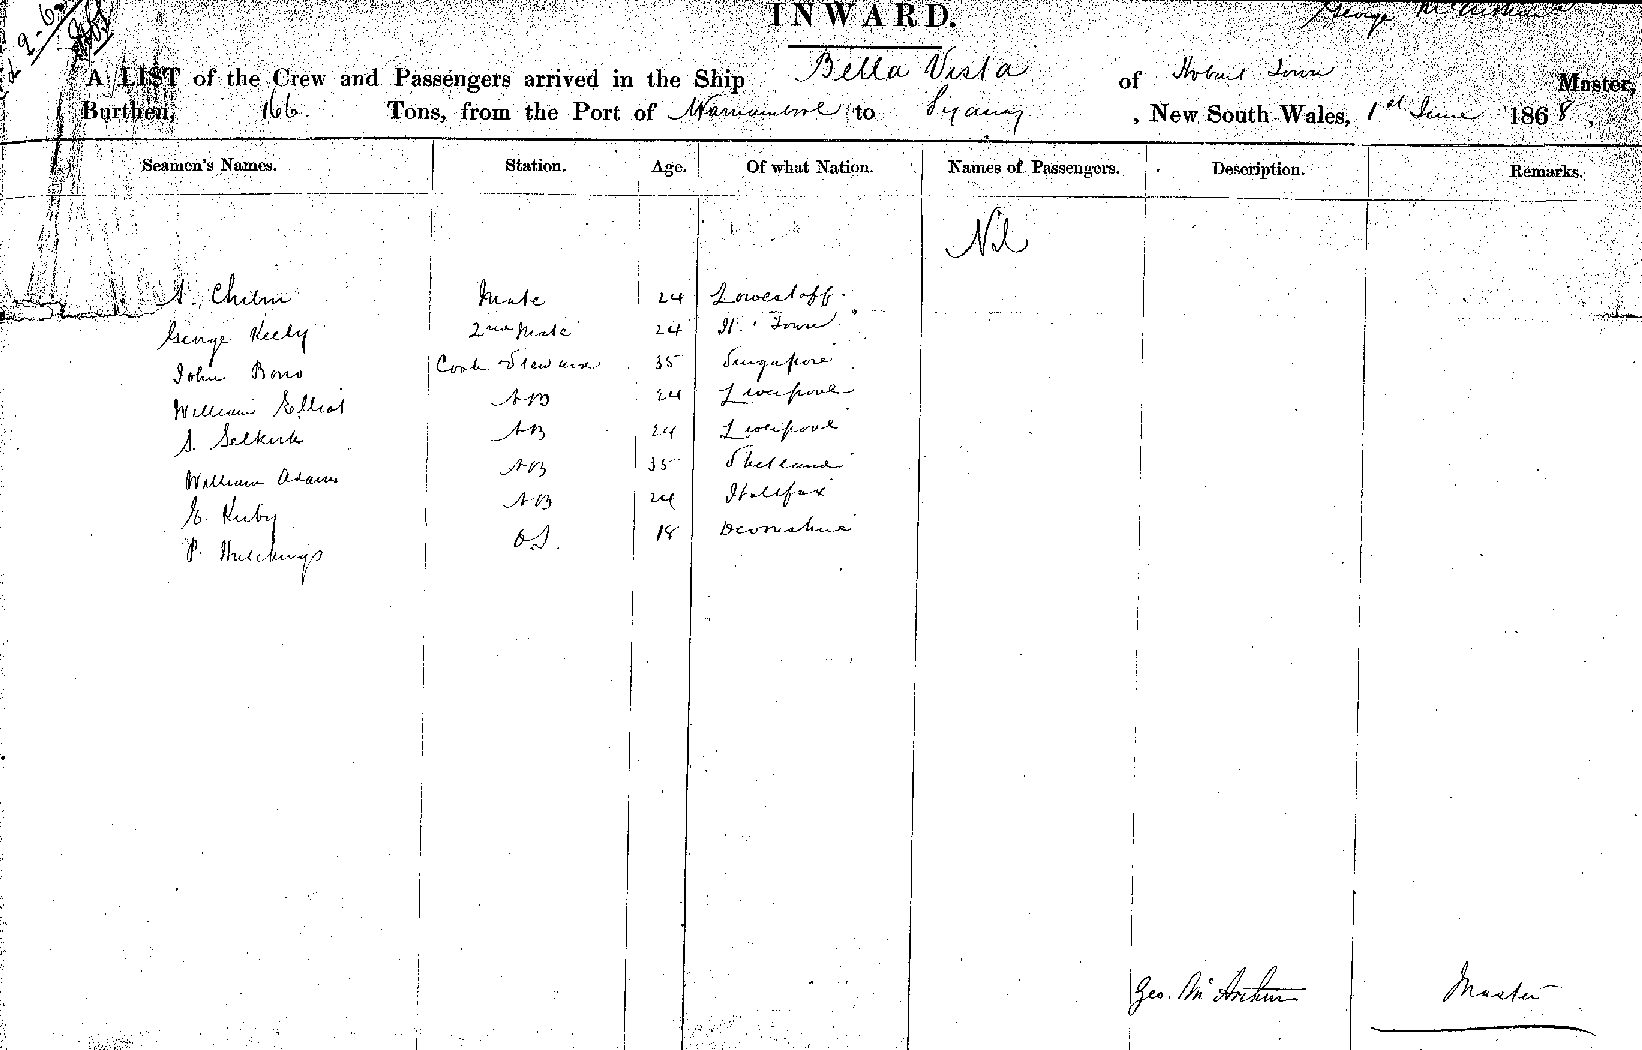 INWARD.
George McArthur
A LIST of the Crew and Passengers arrived in the Ship Bella Vista of Hobart Town Master,
Burthen, 166 Tons, from the Port of Warrnambool to Sydney, New South Wales, 1st June 1868.
Seamen's Names. Station. Age. Of what Nation. Names of Passengers. Description. Remarks.
Nil
Mate 24 Lowestoff.
George Keely 2nd Mate 24 H. Town
John Cook Steward 35 Singapore
William Elliot AB 24 Liverpool
S. Selkirk AB 24 Liverpool
William Adams AB 35 Shetland
E. Kirby AB 24 Halifax
P. Hutchings OS. 18 Devonshire
Geo. McArthur Master